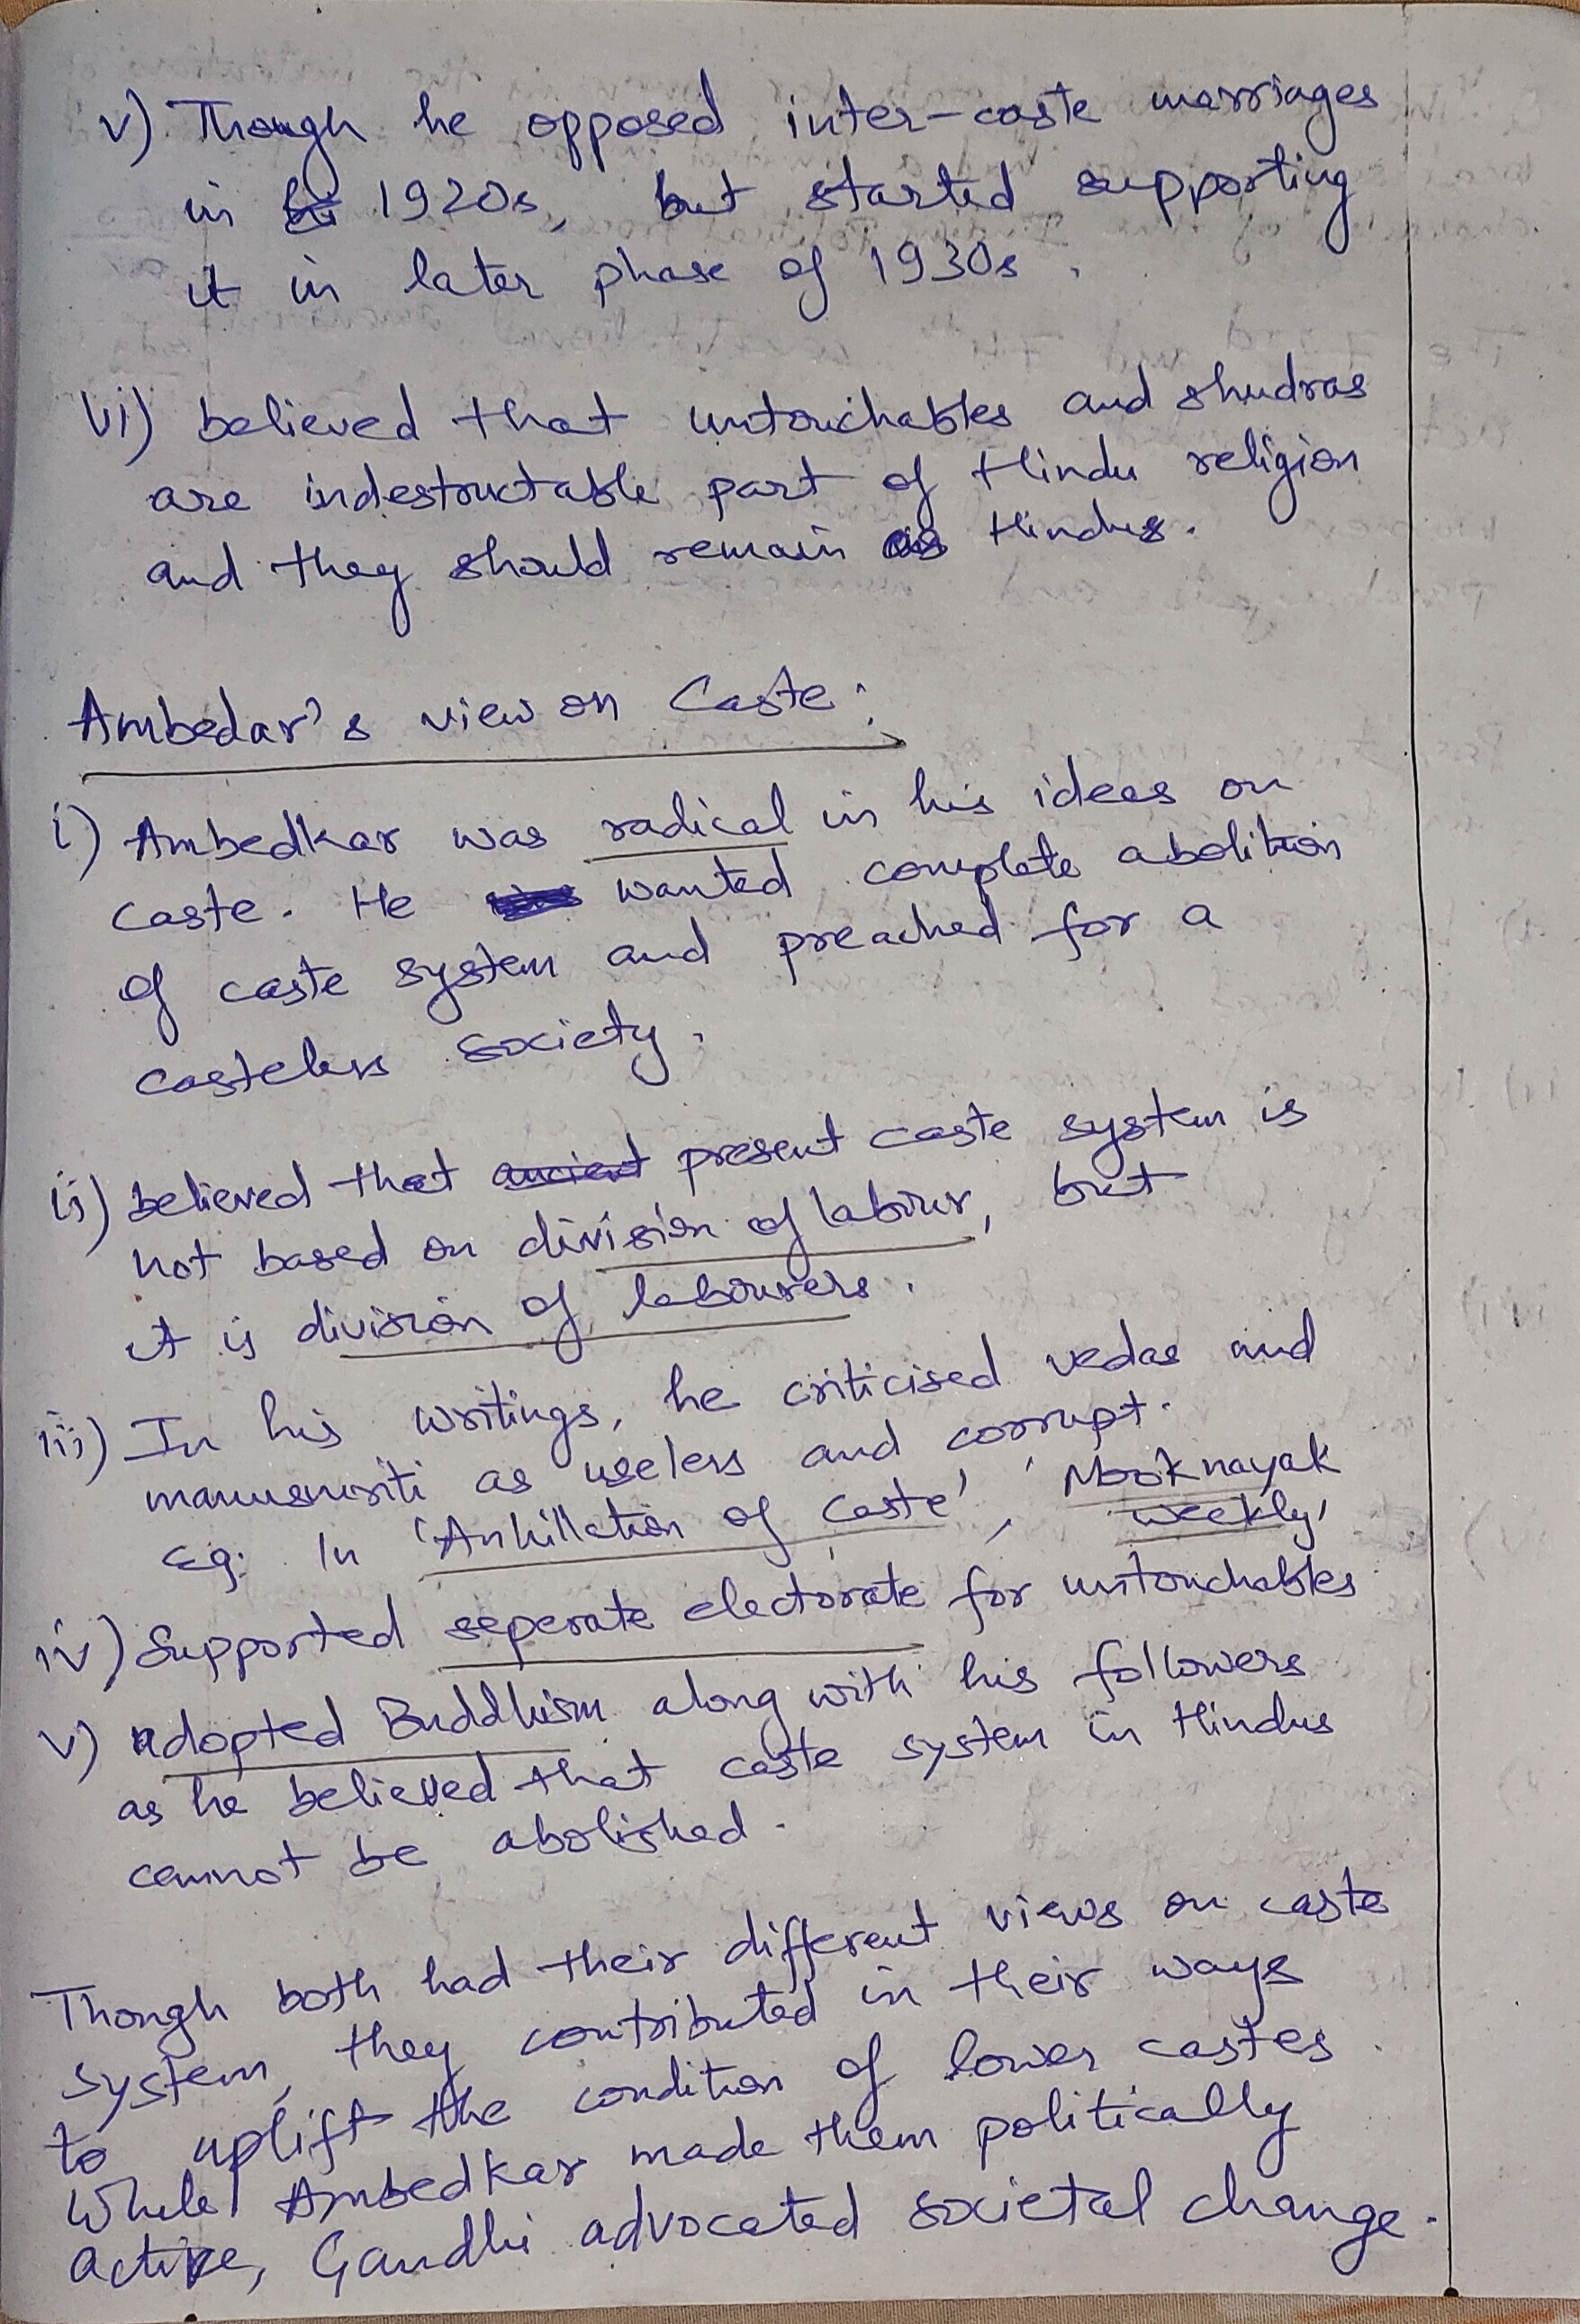 v) Though he opposed inter-caste marriages
in 1920s, but started supporting
it in later phase of 1930s.
vi) believed that untouchables and shudras
are indestructable part of Hindu religion
and they should remain as Hindus.
Ambedar's view on Caste:
i) Ambedkar was radical in his ideas on
caste. He wanted complete abolition
of caste system and preached for a
casteless society.
ii) believed that ancient present caste system is
not based on division of labour, but
it is division of labourers.
iii) In his writings, he criticised vedas and
manusmriti as useless and corrupt.
Eg: In 'Anhillation of Caste', 'Mooknayak
weekly'
iv) Supported seperate electorate for untouchables
v) adopted Buddhism along with his followers
as he believed that caste system in Hindus
cannot be abolished.
Though both had their different views on caste
system, they contributed in their ways
to uplift the condition of lower castes.
While Ambedkar made them politically
active, Gandhi advocated societal change.